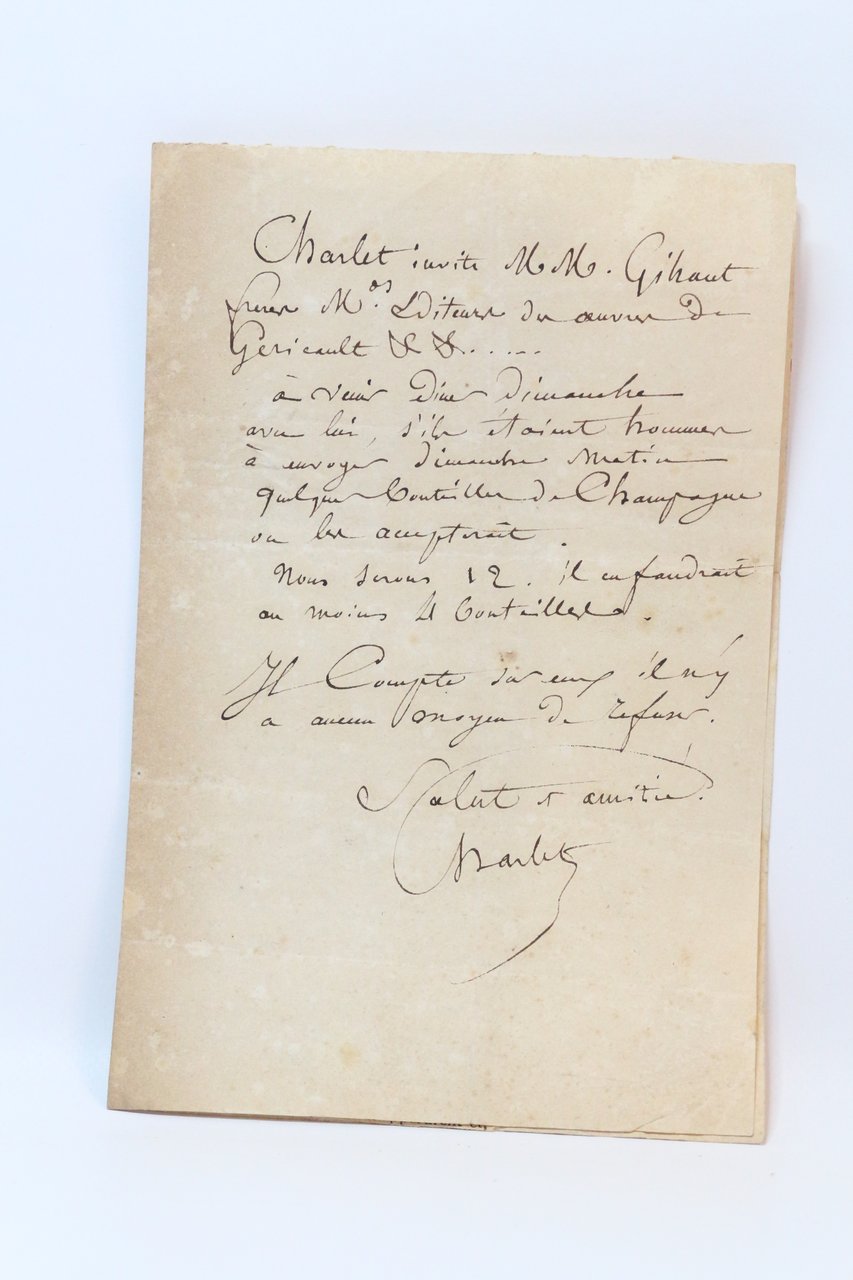 Charlet invite MM. Gihaut
frères Mds Editeurs des œuvres de
Gericault && .....
à venir diner Dimanche
avec lui, s'ils étaient hommes
à envoyer dimanche matin
quelques bouteilles de Champagne
on les accepterait.
Nous serons 12. il en faudrait
au moins 4 bouteilles.
Il Compte sur eux il n'y
a aucun moyen de refuser.
Salut et amitié.
Charlet